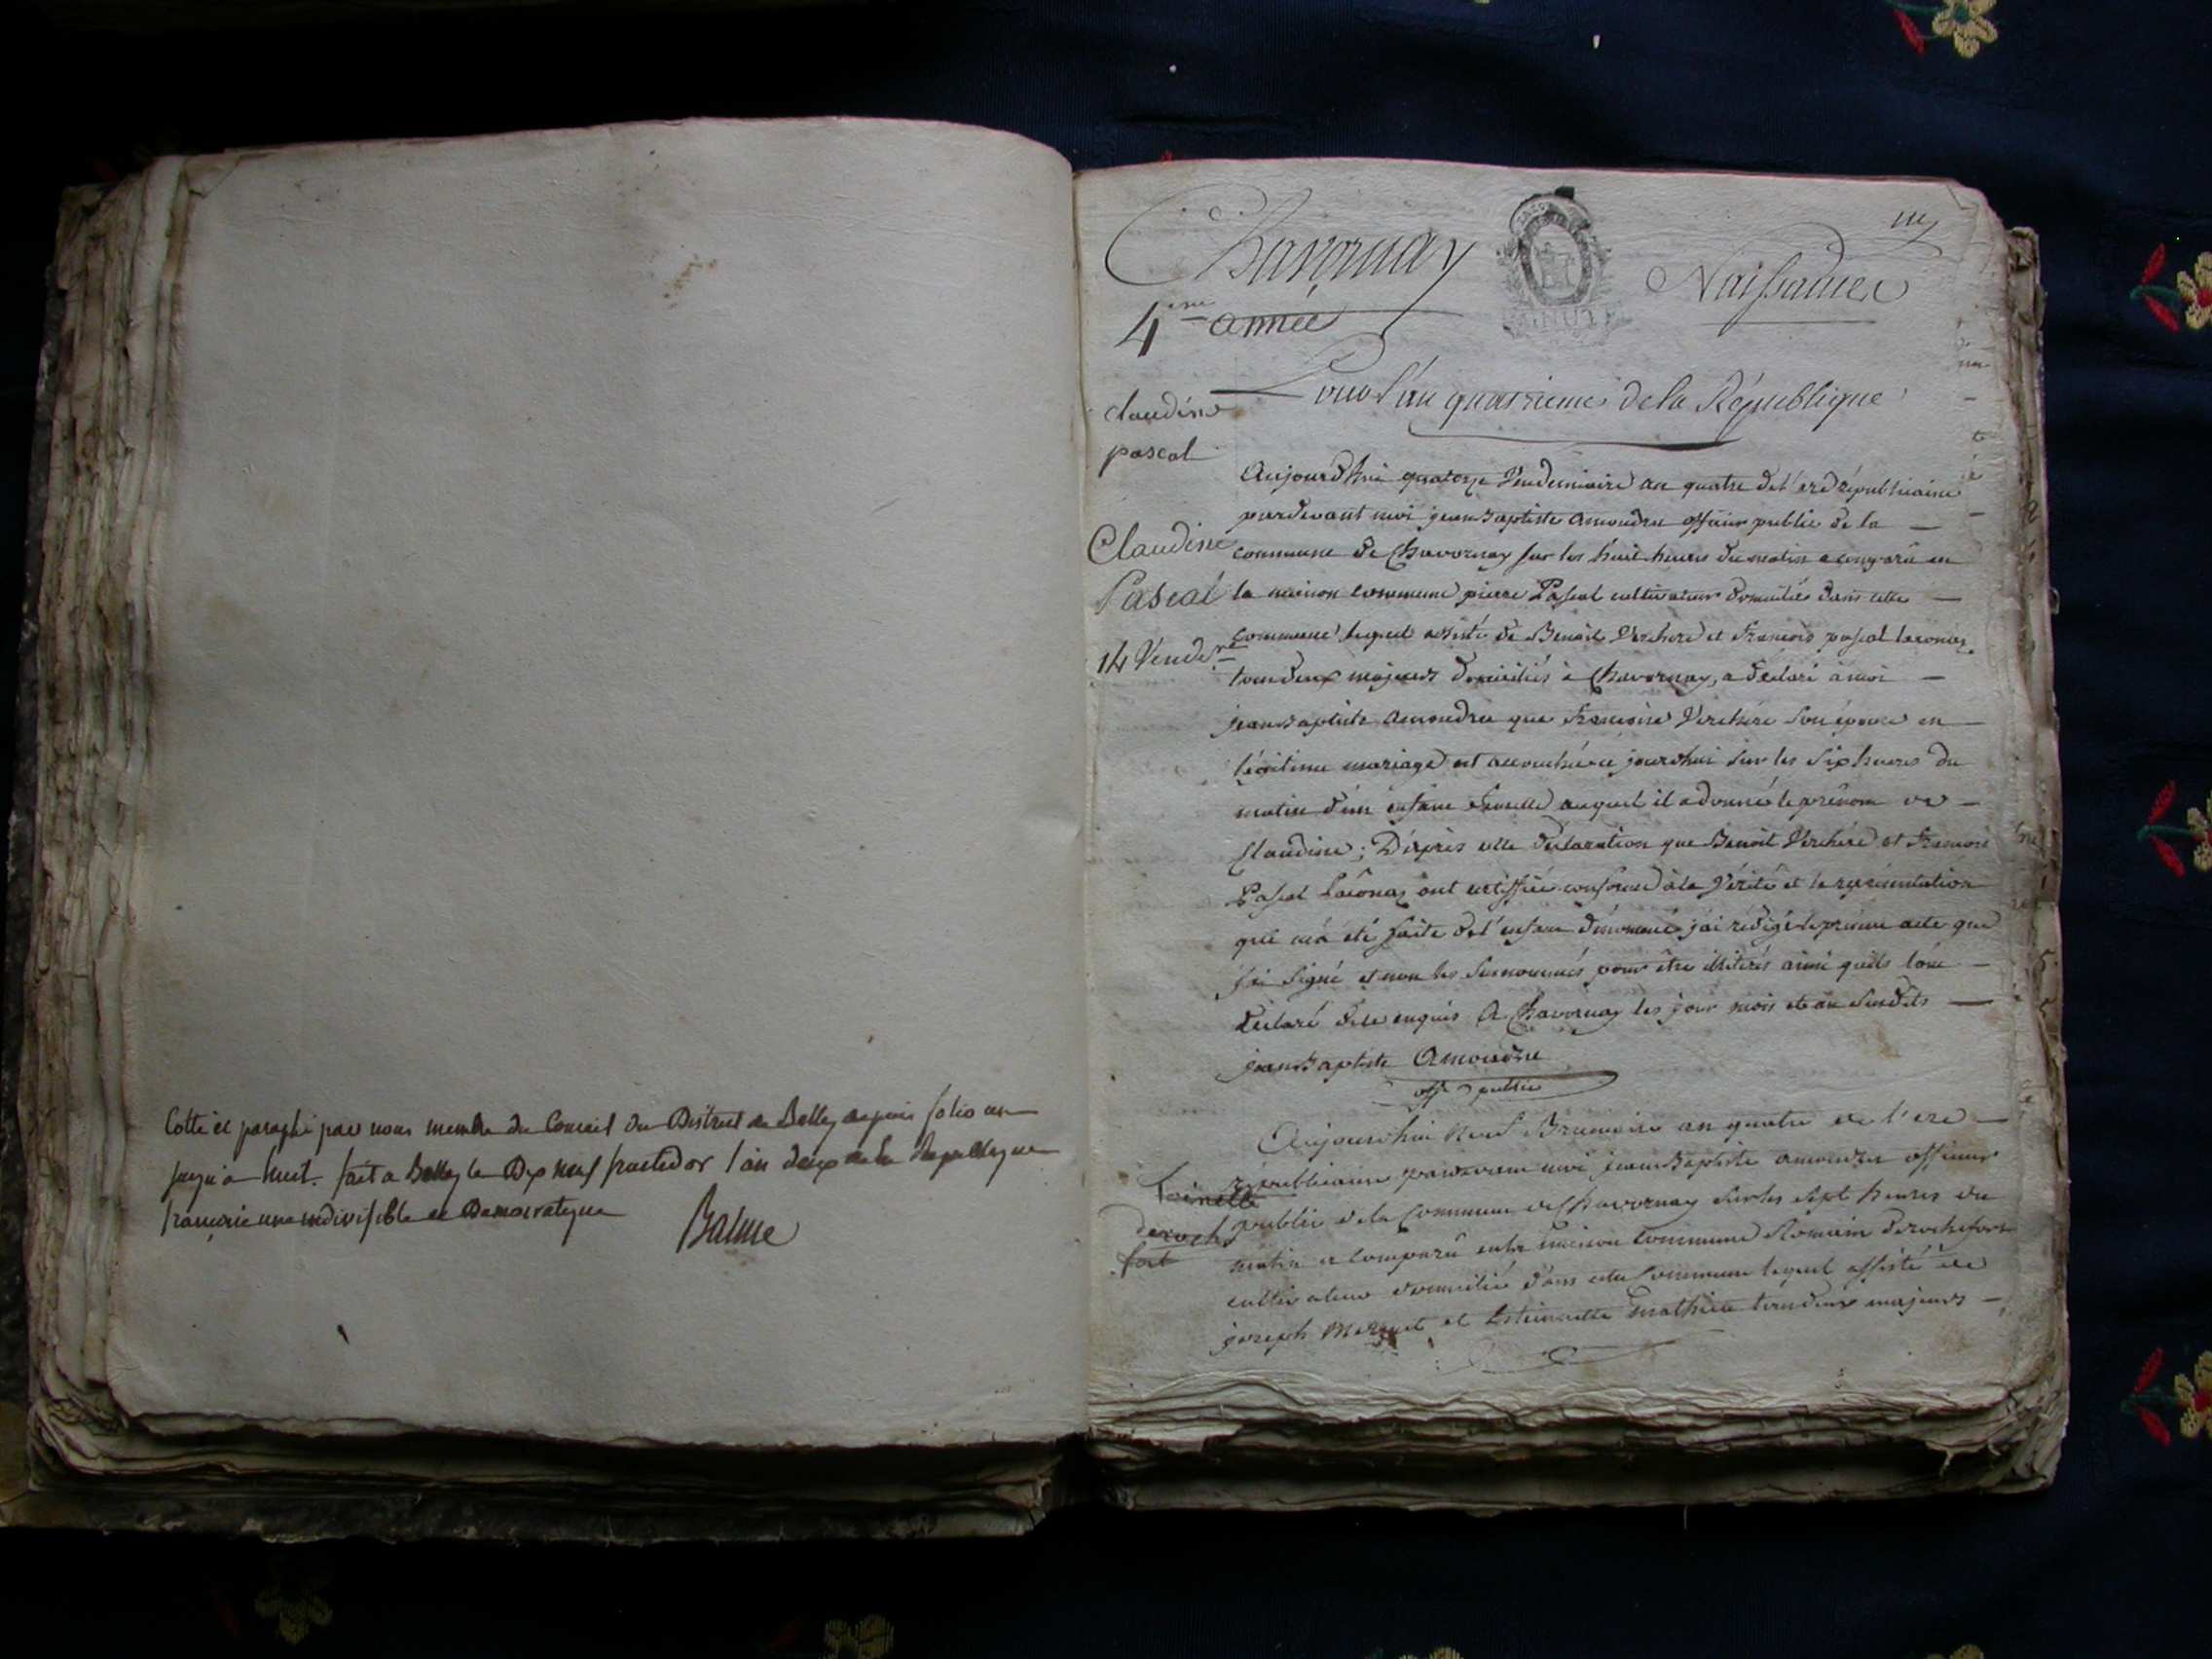 Cotté et paraphé par nous membre du Conseil du District de Belley depuis folio un
jusqu'a huit. fait a Belley le Dix neuf fructidor l'an deux de la Republique
françoise une indivisible et Democratique
Balme
Chavornay
Naissances
4eme année
Pour l'an quatrieme de la République
claudine
pascal
Claudine
Pascal
14 Vendre
Aujourd'hui quatorze Vendemiaire an quatre de l'ere républicaine
pardevant moi jean Baptiste amoudru officier public de la
commune de Chavornay sur les huit heures du matin a comparu en
la maison commune pierre Pascal cultivateur domicilié dans cette
commune lequel assisté de Benoit Verchere et francois pascal
tous deux majeurs domiciliés à Chavornay, a déclaré à moi
jean Baptiste amoudru que francoise Verchere son épouse en
légitime mariage est accouchée ce jourdhui sur les six heures du
matin d'un enfant femelle auquel il a donné le prénom de
Claudine; D'après cette déclaration que Benoit Verchere et francois
Pascal ont certiffiée conforme à la Vérité et la représentation
qui m'a été faite de l'enfant dénommé j'ai rédigé le présent acte que
j'ai signé et non les surnommés pour être illiterés ainsi quils l'ont
déclaré de ce enquis A Chavornay les jour mois et an susdits
jean Baptiste Amoudru
off. public
deroche
fort
Aujourdhui neuf Brumaire an quatre de l'ere
républicaine pardevant moi jean Baptiste amoudru officier
public de la Commune de Chavornay sur les sept heures du
matin a comparu en la maison Commune Romain derochefort
cultivateur domicilié dans cette Commune lequel assisté de
joseph et Estiennette mathieu tous deux majeurs